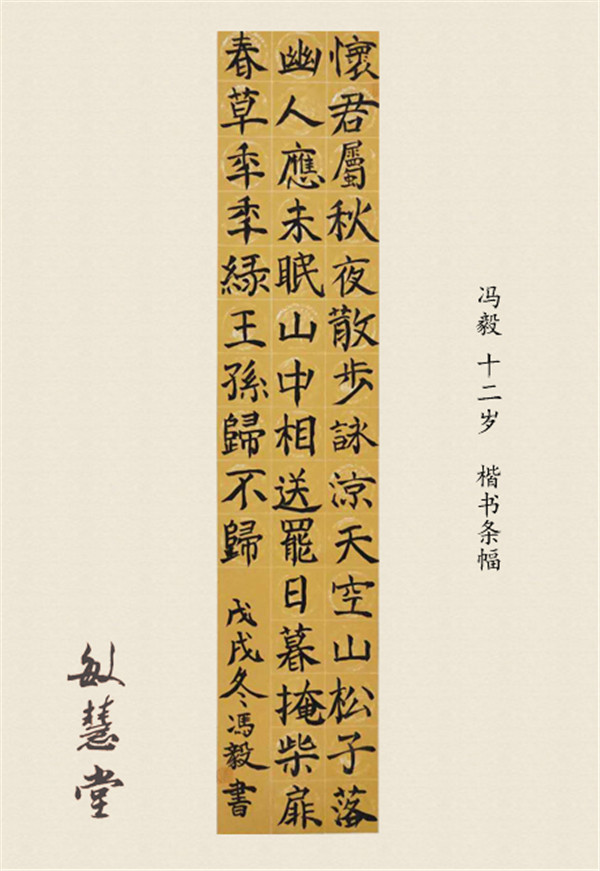 懷君屬秋夜散步詠涼天空山松子落
幽人應未眠山中相送罷日暮掩柴扉
春草年年緑王孫歸不歸
戊戌冬馮毅書
冯毅 十二岁 楷书条幅
敏慧堂